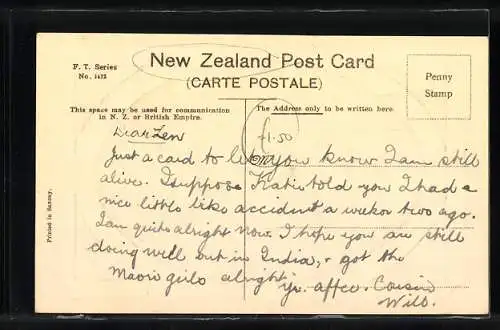 F. T. Series
No. 1472
New Zealand Post Card
(CARTE POSTALE)
Penny
Stamp
This space may be used for communication
in N. Z. or British Empire.
The Address only to be written here.
Dear Len
-1.50
Just a card to let you know I am still
alive. I suppose Katie told you I had a
nice little like accident a week or two ago.
I am quite alright now. I hope you are still
doing well out in India, & got the
Maori girls alright
Yr. affec. Cousin
Will.
Printed in Saxony.